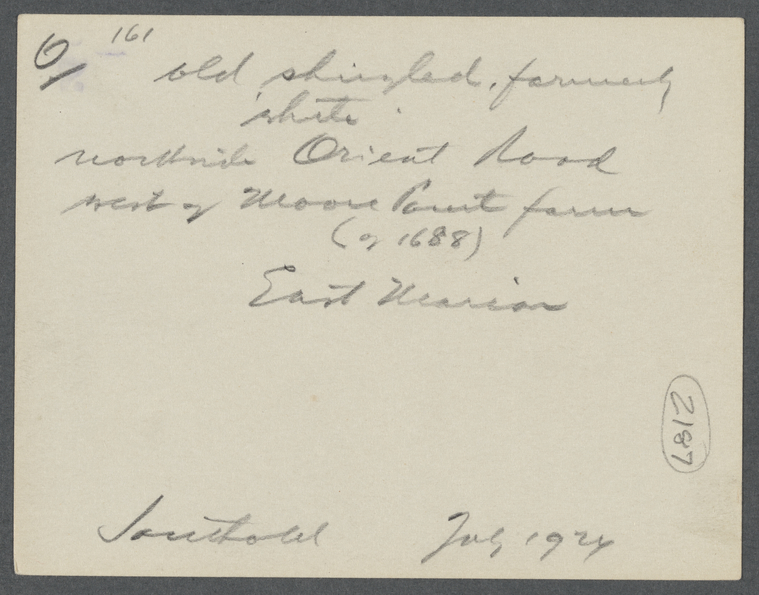 161
old shingled, formerly
white
northside Orient Road
west of Moore Point farm
(of 1688)
East Marion
2187
Southold July 1924